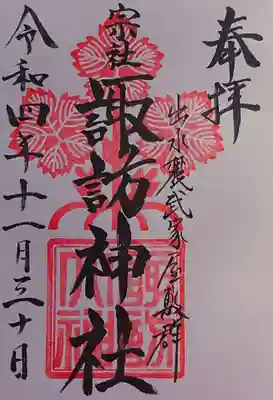 奉拝
出水麓武家屋敷群
宗社
諏訪神社
令和四年十一月三十日